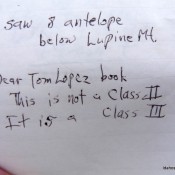 saw 8 antelope
below Lupine Mt.
Dear Tom Lopez book
This is not a Class II
It is a Class III